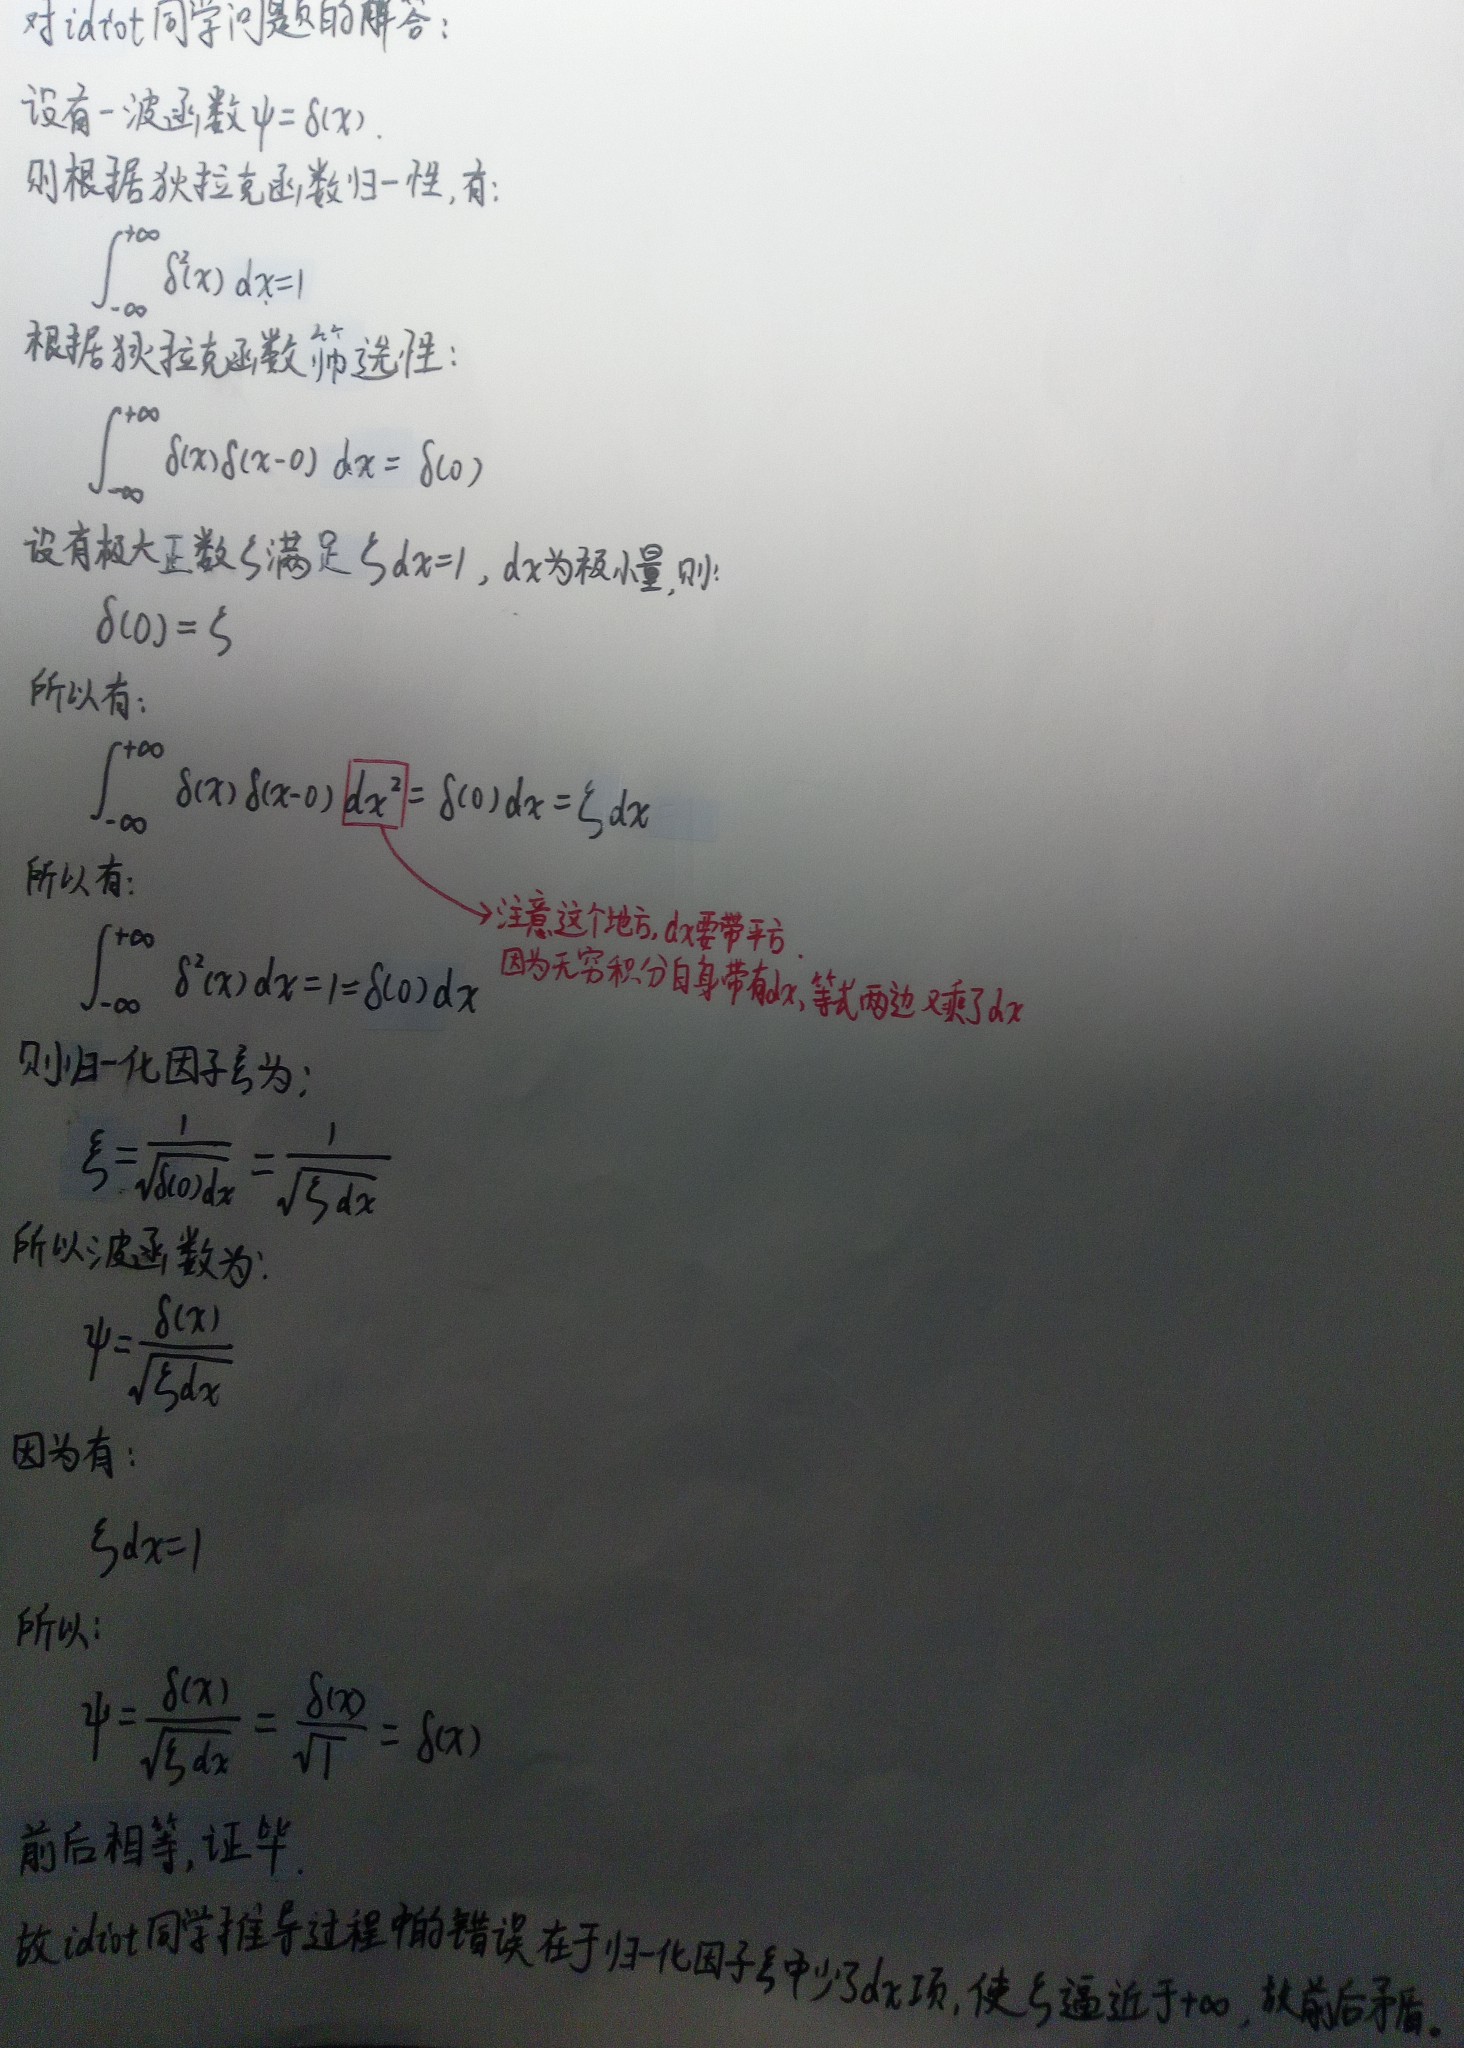 对idiot同学问题的解答:
设有一波函数ψ=δ(x).
则根据狄拉克函数归一性,有:
∫_{-∞}^{+∞} δ²(x) dx=1
根据狄拉克函数筛选性:
∫_{-∞}^{+∞} δ(x)δ(x-0) dx = δ(0)
设有极大正数ζ满足ζdx=1, dx为极小量,则:
δ(0)=ζ
所以有:
∫_{-∞}^{+∞} δ(x)δ(x-0) dx² = δ(0)dx = ζdx
所以有:
注意这个地方,dx要带平方.
因为无穷积分自身带有dx,等式两边又乘了dx
∫_{-∞}^{+∞} δ²(x)dx=1=δ(0)dx
则归一化因子ξ为:
ξ=1/√(δ(0)dx) = 1/√(ζdx)
所以波函数为:
ψ=δ(x)/√(ζdx)
因为有:
ζdx=1
所以:
ψ=δ(x)/√(ζdx) = δ(x)/√1 = δ(x)
前后相等,证毕.
故idiot同学推导过程中的错误在于归一化因子ξ中少了dx项,使ζ逼近于+∞,故前后矛盾。